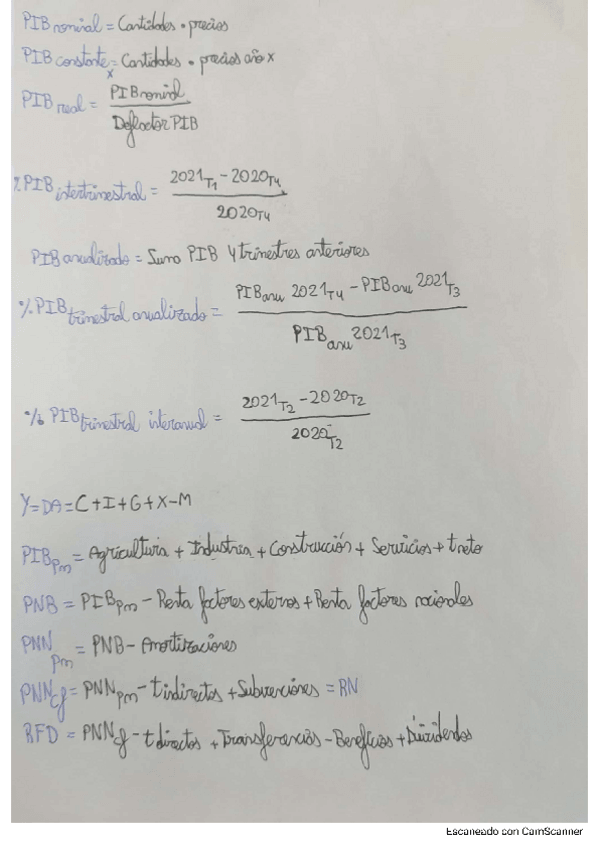 PIB nominal = Cantidades • precios
PIB constante x = Cantidades • precios año x
PIB real = PIB nominal / Deflactor PIB
% PIB intertrimestral = 2021 T1 - 2020 T4 / 2020 T4
PIB anualizado = Suma PIB 4 trimestres anteriores
% PIB trimestral anualizado = PIB anu 2021 T4 - PIB anu 2021 T3 / PIB anu 2021 T3
% PIB trimestral interanual = 2021 T2 - 2020 T2 / 2020 T2
Y = DA = C + I + G + X - M
PIB pm = Agricultura + Industria + Construcción + Servicios + t neto
PNB = PIB pm - Renta factores externos + Renta factores nacionales
PNN pm = PNB - Amortizaciones
PNN cf = PNN pm - t indirectos + Subvenciones = RN
RFD = PNN cf - t directos + Transferencias - Beneficios + Dividendos
Escaneado con CamScanner